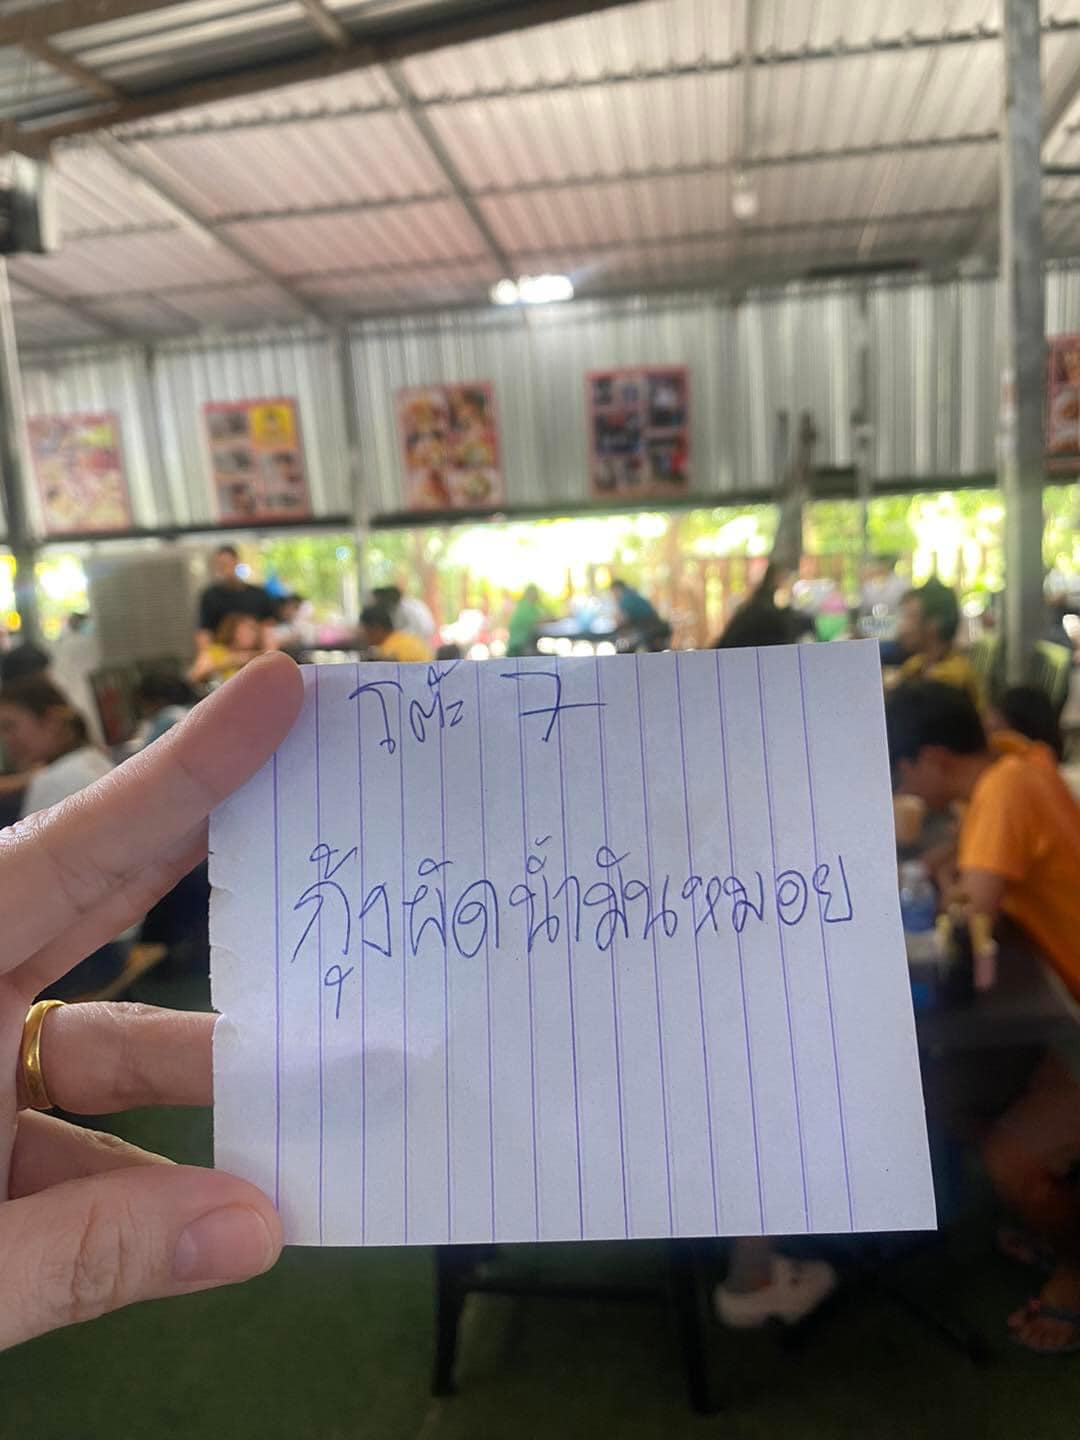 โต๊ะ 7
กุ้งผัดน้ำมันหมอย